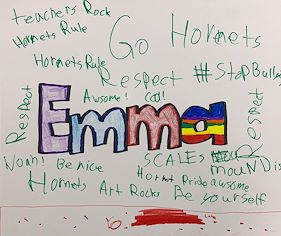 teachers Rock
Hornets Rule
Go Hornets
Hornets Rule
Respect #StopBully
Awsome! Cool!
Respect
Emma
Respect
Noah! Be nice
SCALES MOUNDis
Hornet Pride awsome
Hornets Art Rocks Be yourself